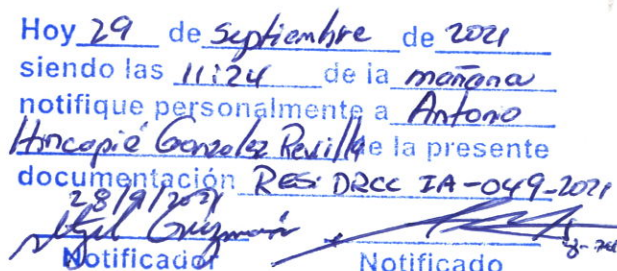 Hoy 29 de Septiembre de 2021
siendo las 11:24 de la mañana
notifique personalmente a Antono
Hincapié Gonzalez Revilla de la presente
documentación RES. DRCC IA-049-2021
28/9/2021
Guzmán
Notificador Notificado